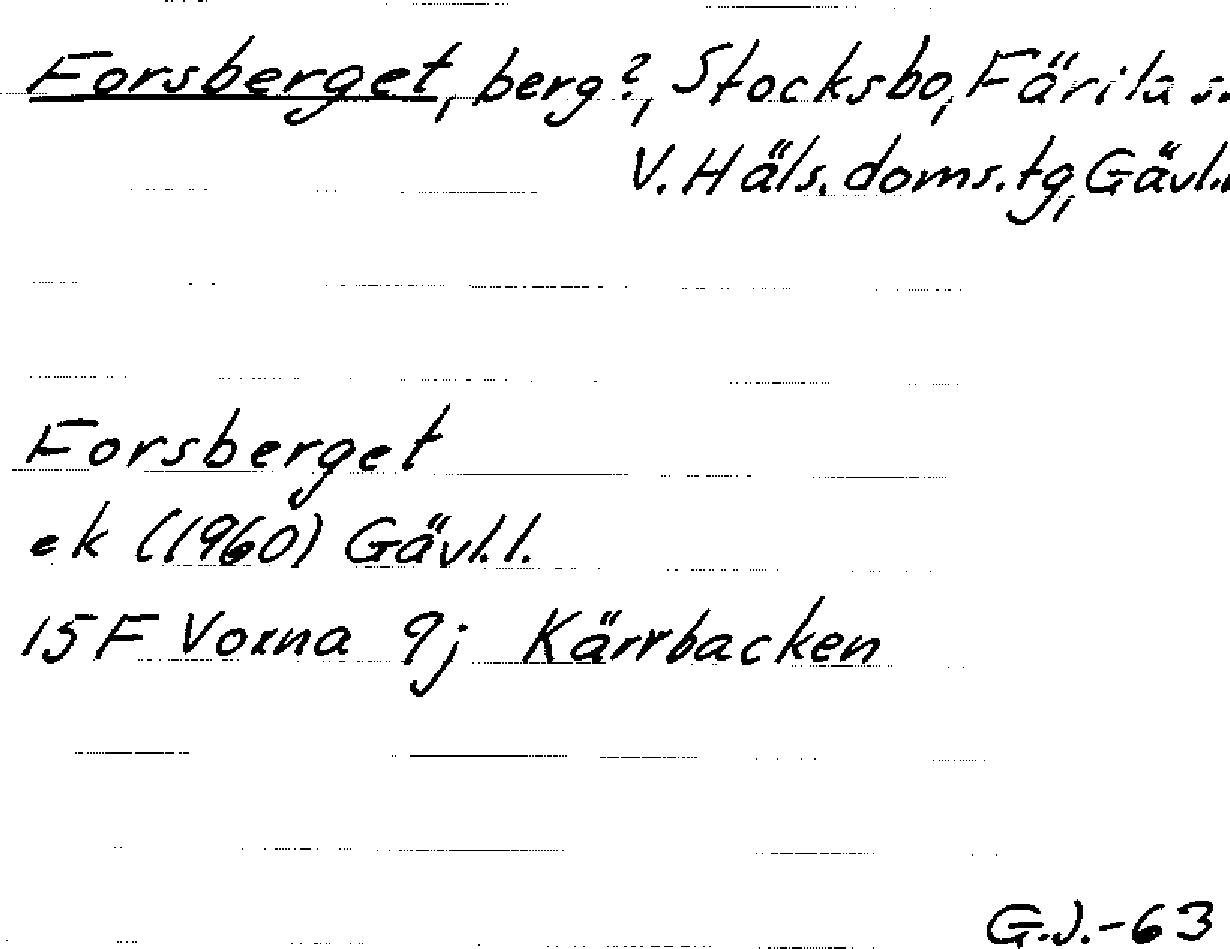 Forsberget, berg?, Stocksbo, Färila s.
V. Häls. doms. tg, Gävl.
Forsberget
ek (1960) Gävl.l.
15F Voxna 9j Kärrbacken
G.J.-63